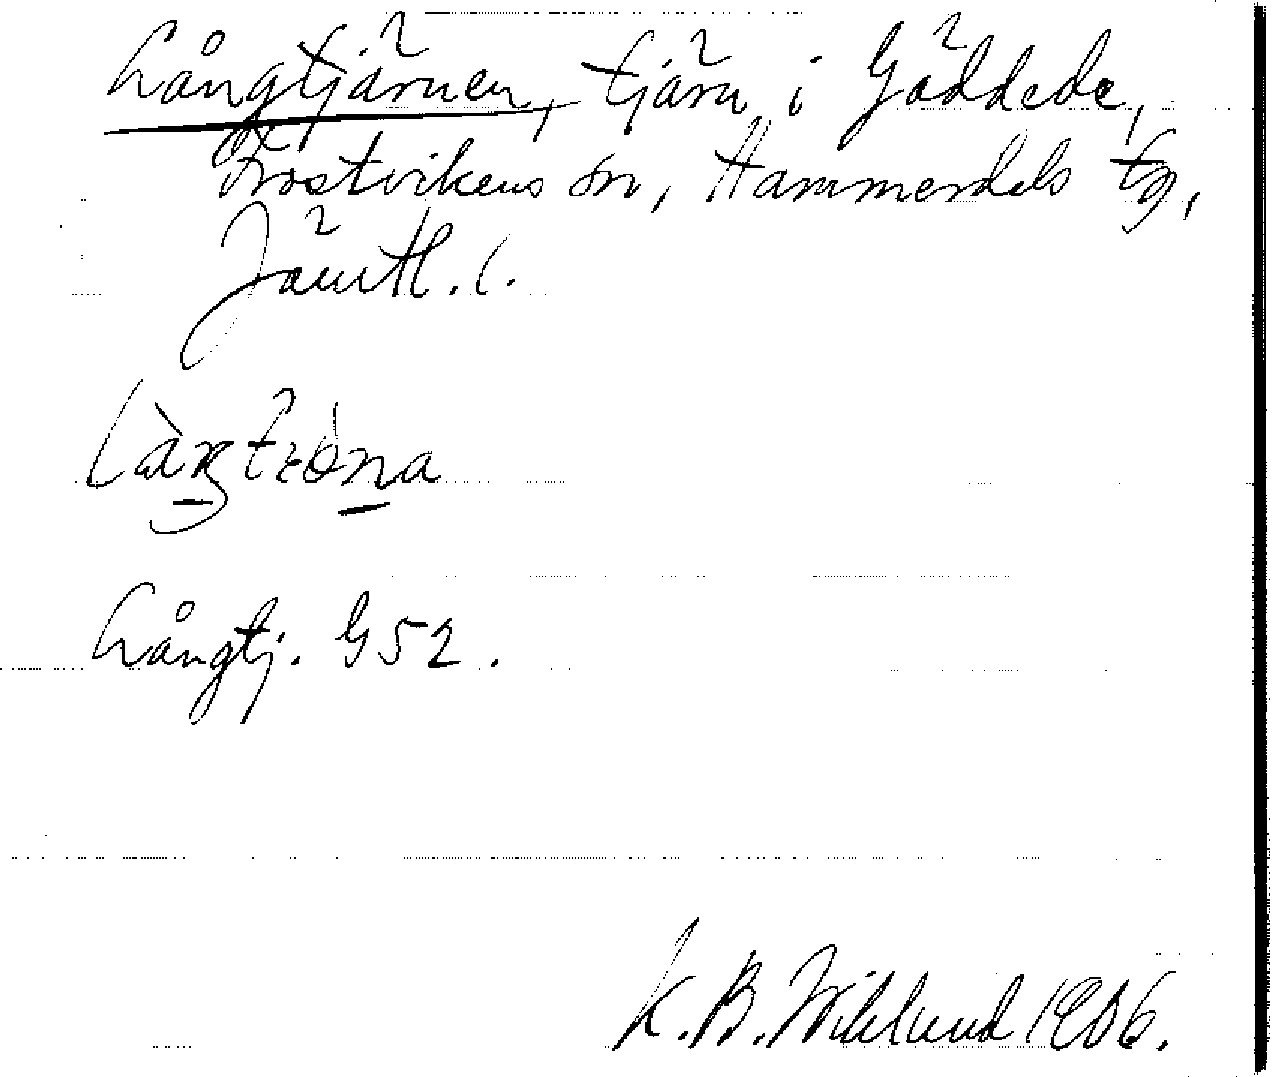 Långtjärnen, tjärn i Gäddede,
Frostvikens sn, Hammerdals tg,
Jämtl. l.
Långtj. G52.
K. B. Wiklund 1906.